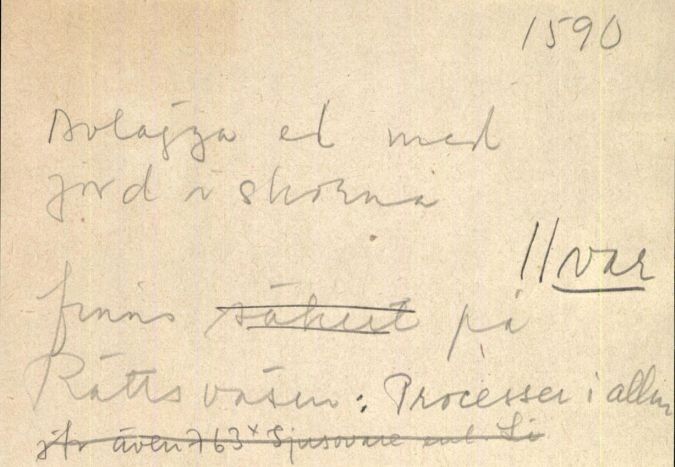 1590
Avlägga ed med
jord i skorna
// var
finns säkert på
Rättsväsen: Processer i allm
jfr även 763x Sjusovare enl.